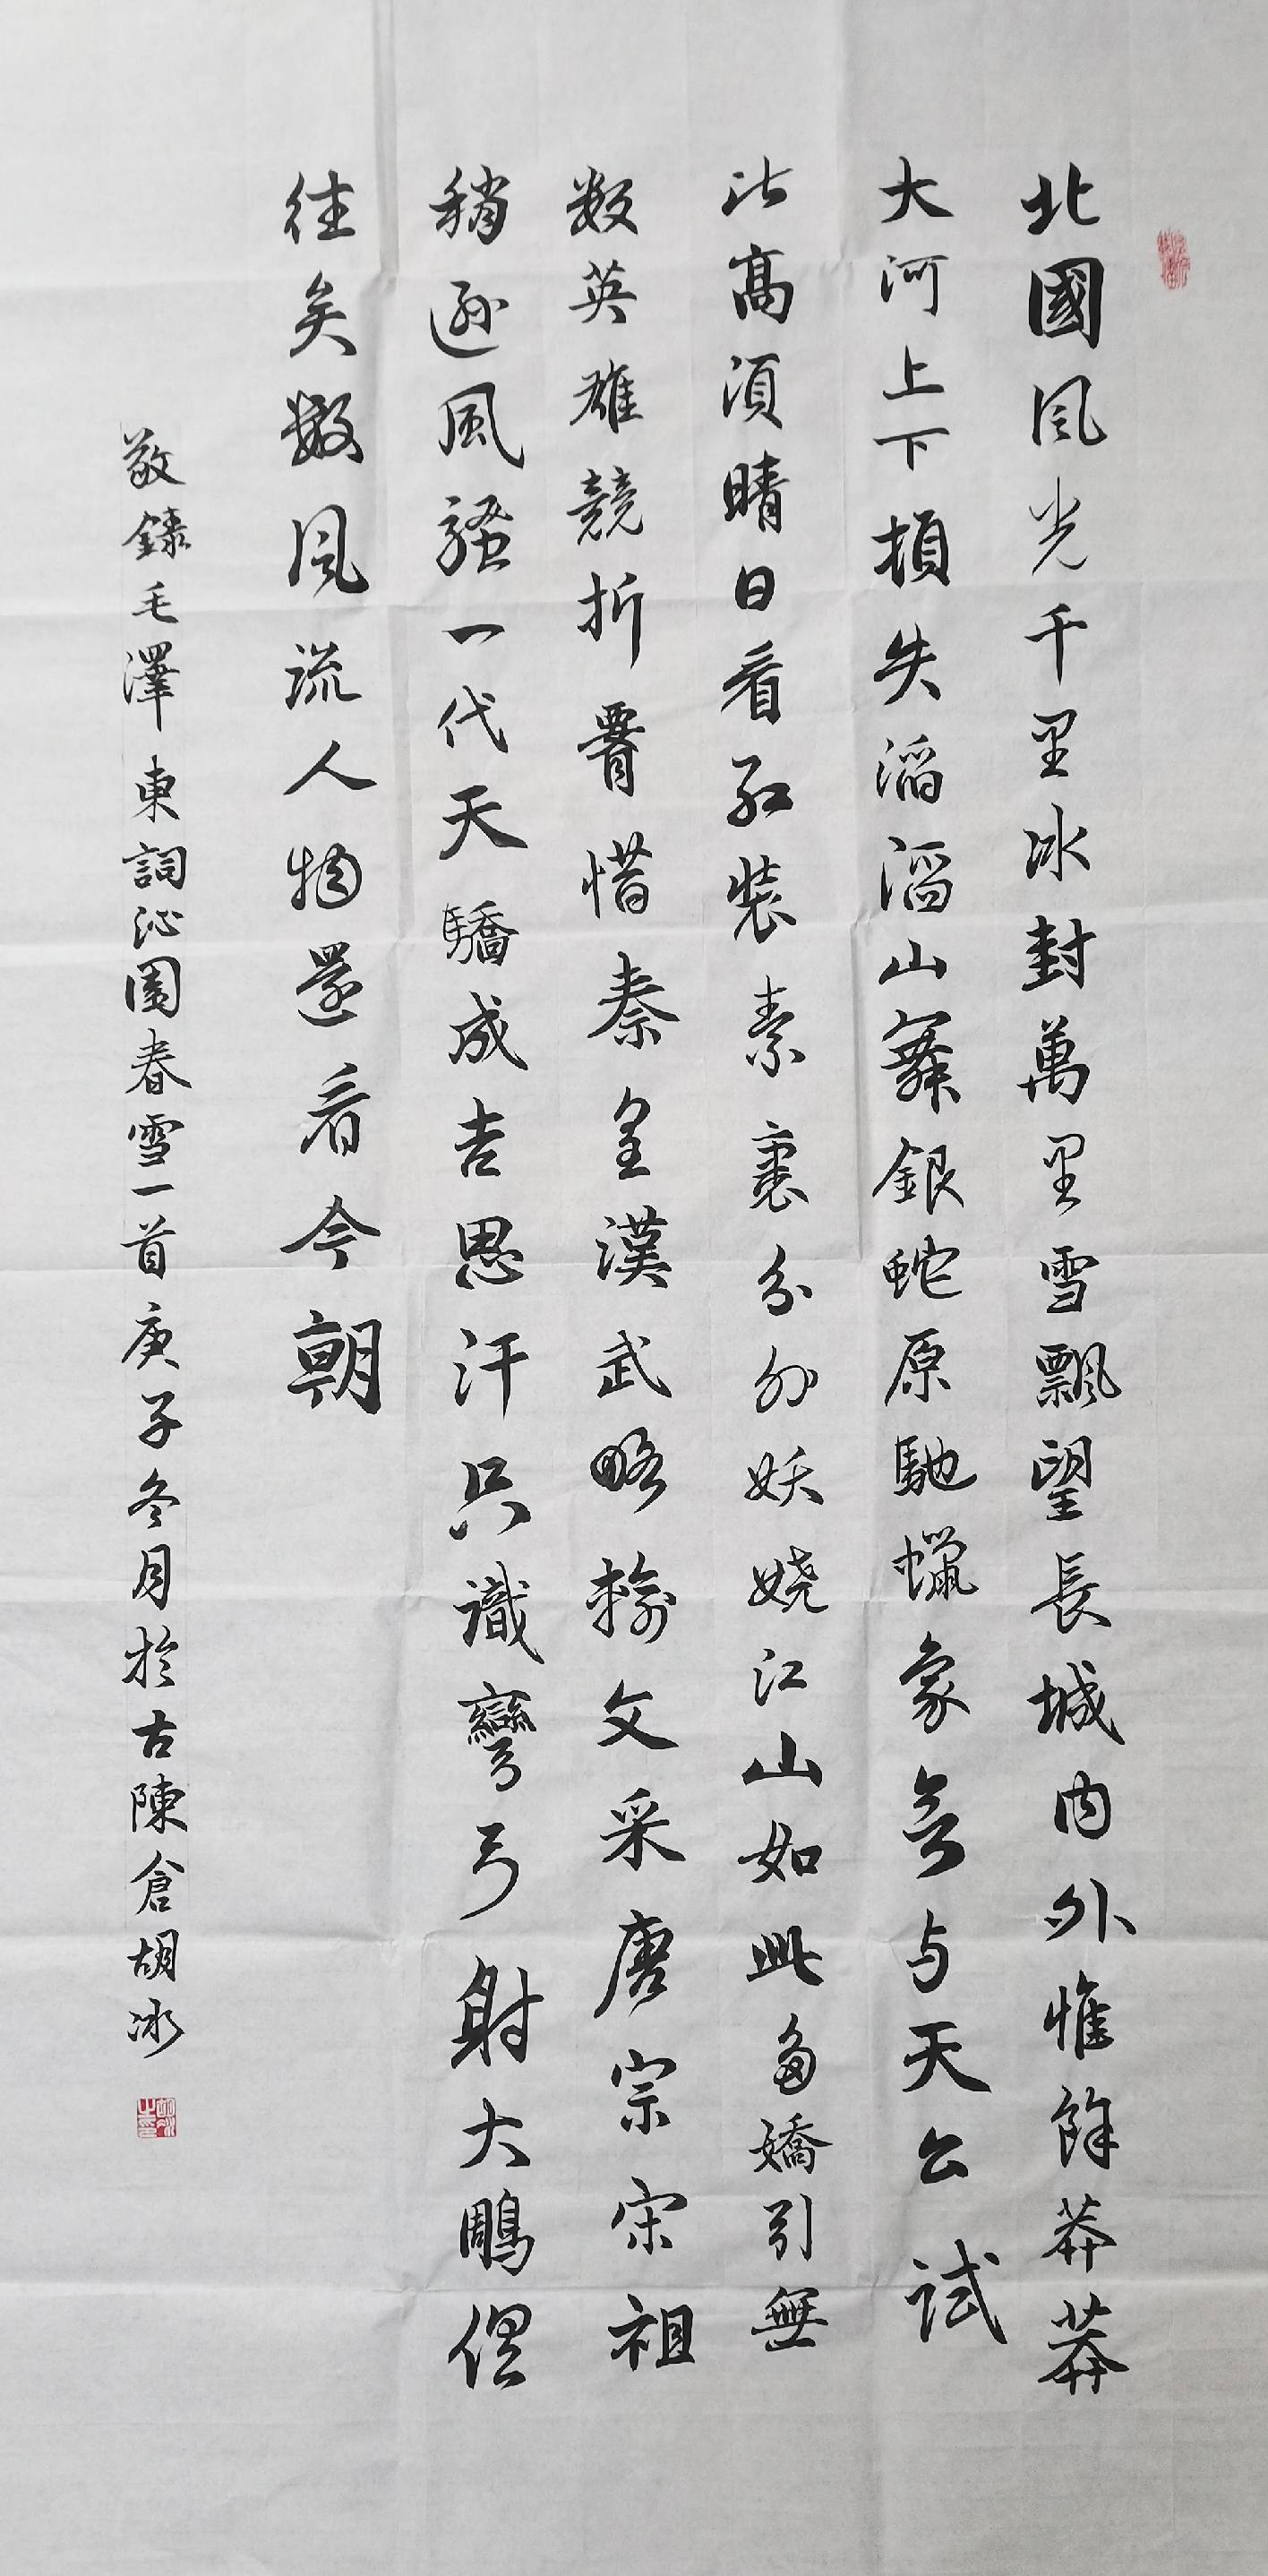 北國風光千里冰封萬里雪飄望長城内外惟餘莽莽
大河上下頓失滔滔山舞銀蛇原馳蠟象欲与天公試
比高須晴日看紅裝素裹分外妖嬈江山如此多嬌引無
数英雄競折腰惜秦皇漢武略輸文采唐宗宋祖
稍遜風騷一代天驕成吉思汗只識彎弓射大鵰俱
往矣數風流人物還看今朝
敬錄毛澤東詞沁園春雪一首庚子冬月於古陳倉胡冰
胡冰之印